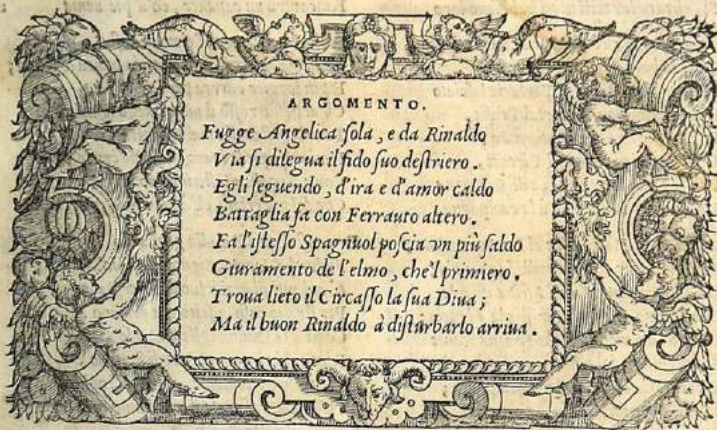 ARGOMENTO.
Fugge Angelica sola, e da Rinaldo
Via si dilegua il fido suo destriero.
Egli seguendo, d'ira e d'amor caldo
Battaglia fa con Ferrauto altero.
Fa l'istesso Spagnuol poscia vn più saldo
Giuramento de l'elmo, che'l primiero.
Troua lieto il Circasso la sua Diua;
Ma il buon Rinaldo à disturbarlo arriua.